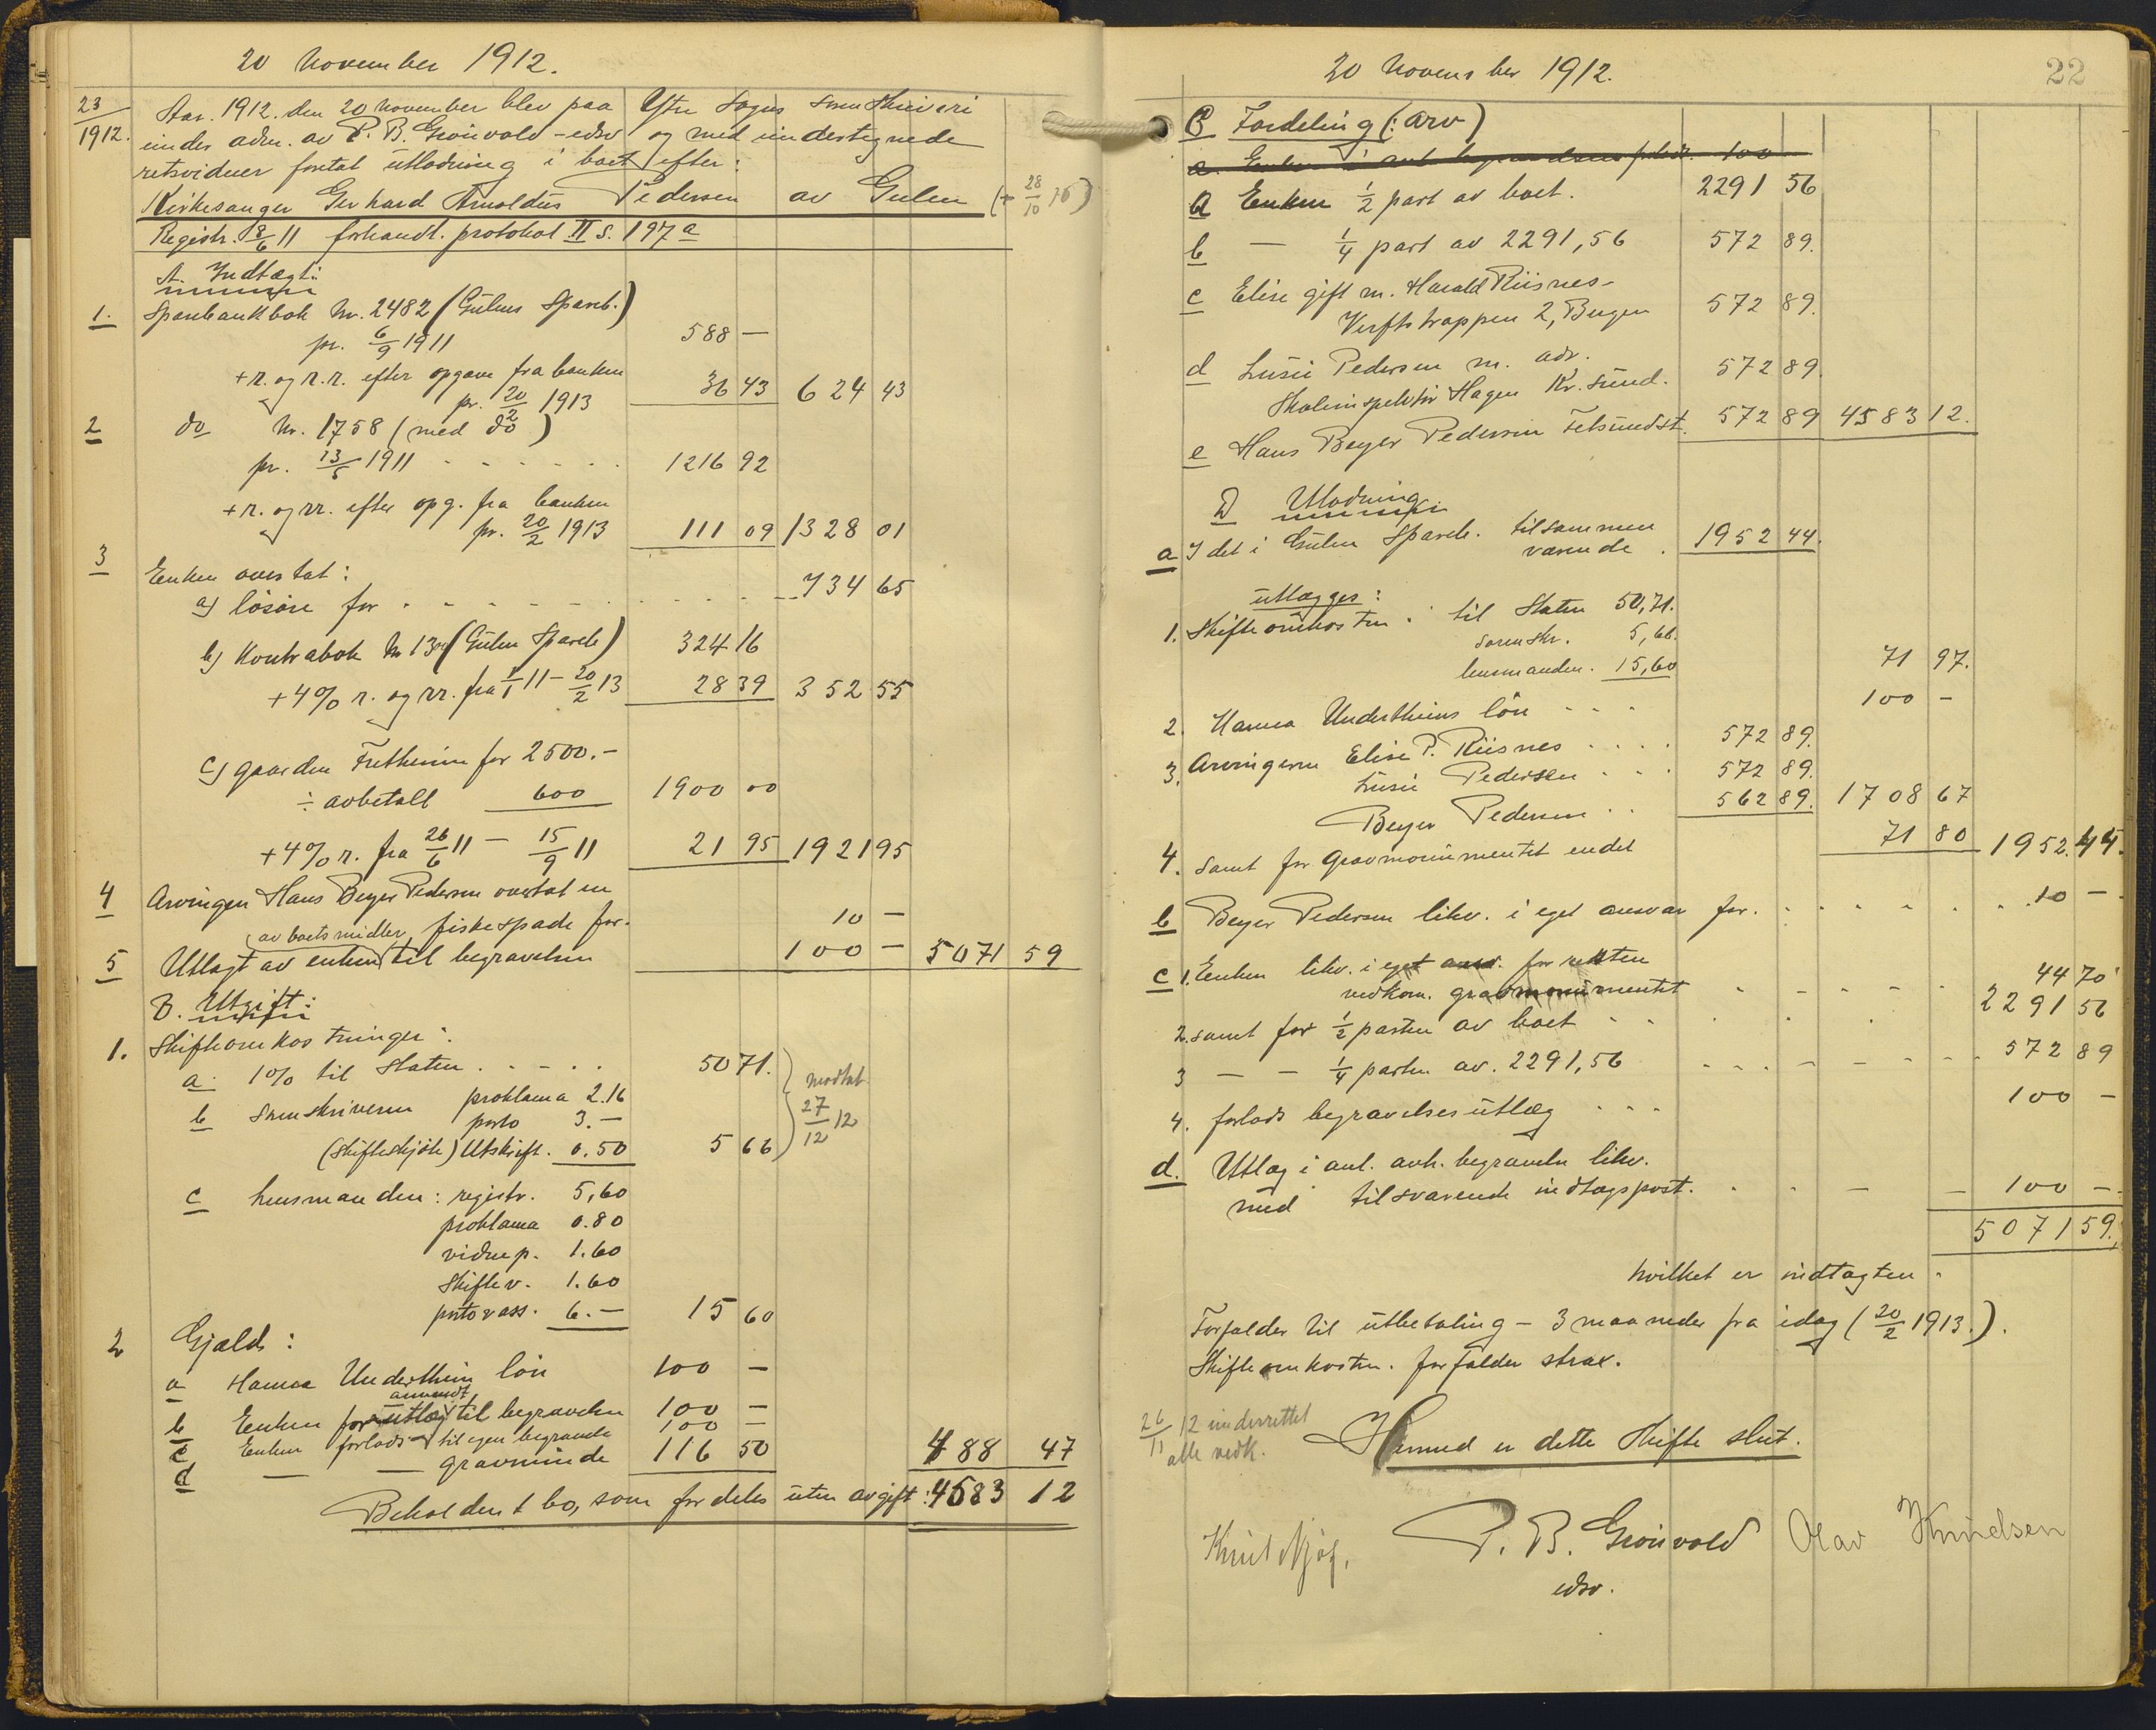 20 November 1912.
23/1912. Aar. 1912. den 20 November blev paa Ytre Sogns Sorenskriveri
under adm. av P. B. Grönvold - edsv og med undertegnede
retsvidner foretat utlodning i boet efter:
Kirkesanger Gerhard Arnoldus Pedersen av Gulen (+ 28/10 10)
Registr. 8/6 11 forhandl. protokol II s. 197 a
A. Indtægt:
1. Sparebankbok Nr. 2482 (Gulens Spareb.)
pr. 6/9 1911 588 —
+ r. og r.r. efter opgave fra banken
pr. 20/2 1913 36 43 624 43
2 do Nr. 1758 (med do)
pr. 13/5 1911 - - - - - - 1216 92
+ r. og rr. efter opg. fra banken
pr. 20/2 1913 111 09 1328 01
3 Enken overtat:
a) lösöre for - - - - - - - - - - 734 65
b) Kontrabok Nr 130 (Gulen Spareb) 324 16
+ 4% r. og rr. fra 1/1 11 - 20/2 13 28 39 352 55
c) gaarden Fretheim for 2500.-
÷ avbetalt 600 1900 00
+ 4% r. fra 26/6 11 — 15/9 11 21 95 1921 95
4 Arvingen Hans Beyer Pedersen overtat en
fiskespade for. 10 —
5 Utlagt av enken av boets midler til begravelsen 100 — 5071 59
B. Utgift:
1. Skifteomkostninger:
a. 1% til Staten. - - - - 50 71.
b Sorenskriveren proklama 2.16
porto 3.—
(Skifteskjöte) Utskrift. 0.50 5 66
modtat 27/12 12
c lensmanden: registr. 5,60
proklama 0.80
vidnep. 1.60
Skiftev. 1.60
porto v ass. 6.— 15 60
2 Gjæld:
a Hanna Undertheim lön 100 —
b Enken for utlæg anvendt til begravelsen 100 —
c Enken forlods til egen begravelse 100 —
d — — gravminde 116 50 488 47
Beholdent bo, som fordeles uten avgift: 4583 12
20 November 1912. 22
C Fordeling (: arv)
a. Enken 100
a Enken 1/2 part av boet. 2291 56
b — 1/4 part av 2291,56 572 89.
c Elise gift m. Harald Riisnes -
Verftstrappen 2, Bergen 572 89.
d Lusie Pedersen m. adr.
Skoleinspektör Hagen Kr. sund. 572 89.
e Hans Beyer Pedersen Felsundst. 572 89 4583 12.
D Utlodning
a I det i Gulen Spareb. tilsammen
værende . 1952 44.
utlægges:
1. Skifteomkostn. : til Staten 50,71.
sorenskr. 5,66.
lensmanden. 15,60 71 97.
2. Hanna Undertheims lön - - - 100 -
3. Arvingerne Elise P. Riisnes . . . . 572 89.
Lusie Pedersen . . . 572 89.
Beyer Pedersen . . 562 89. 1708 67
4. samt for gravmonumentet endel 71 80 1952. 44.
b Beyer Pedersen likv. i eget ansvar for. . . . . . . . 10 —
c 1. Enken likv. i eget ansv. for resten
vedkom. gravmonumentet - - - - - 44 70
2. samt for 1/2 parten av boet - - . . . 2291 56
3 — — 1/4 parten av. 2291,56 - - - - - - - 572 89
4. forlods begravelsesutlæg - - - 100 —
d. Utlæg i anl. avh. begravelse likv.
med tilsvarende indtægspost. - - — — 100 —
5071 59.
hvilket er indtægten.
Forfalder til utbetaling - 3 maaneder fra idag (20/2 1913.).
Skifteomkostn. forfalder strax.
26/11 12 underrettet
alle vedk.
Hermed er dette Skifte slut.
P. B. Grönvold
edsv.
Olav Knudsen